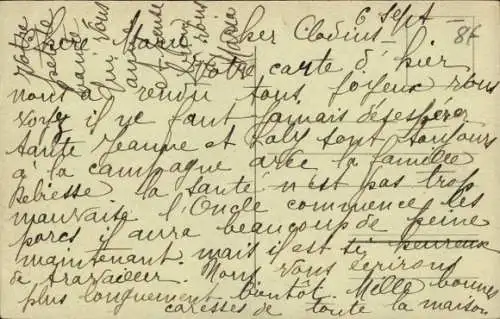 6 Sept
86
Chère Marie Cher Clodius
Votre carte d'hier
nous a rendu tous joyeux vous
voyez il ne faut jamais désespérer
tante Jeanne et sont toujours
à la campagne avec la famille
la santé n'est pas trop
mauvaise l'Oncle commence les
porcs il aura beaucoup de peine
maintenant mais il est si heureux
de travailler. Nous vous écrirons
plus longuement bientôt. Mille bonnes
caresses de toute la maison
Votre
petite
qui vous
aime
Maria